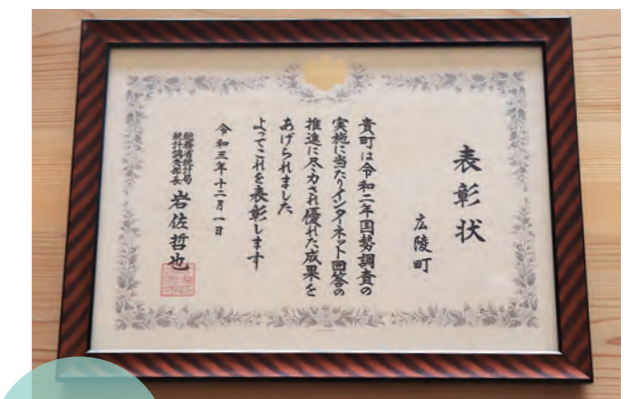 表彰状
広陵町
貴町は令和二年国勢調査の
実施に当たりインターネット回答の
推進に尽力され優れた成果を
あげられました
よってこれを表彰します
令和三年十二月一日
総務省統計局
統計調査部長 岩佐哲也